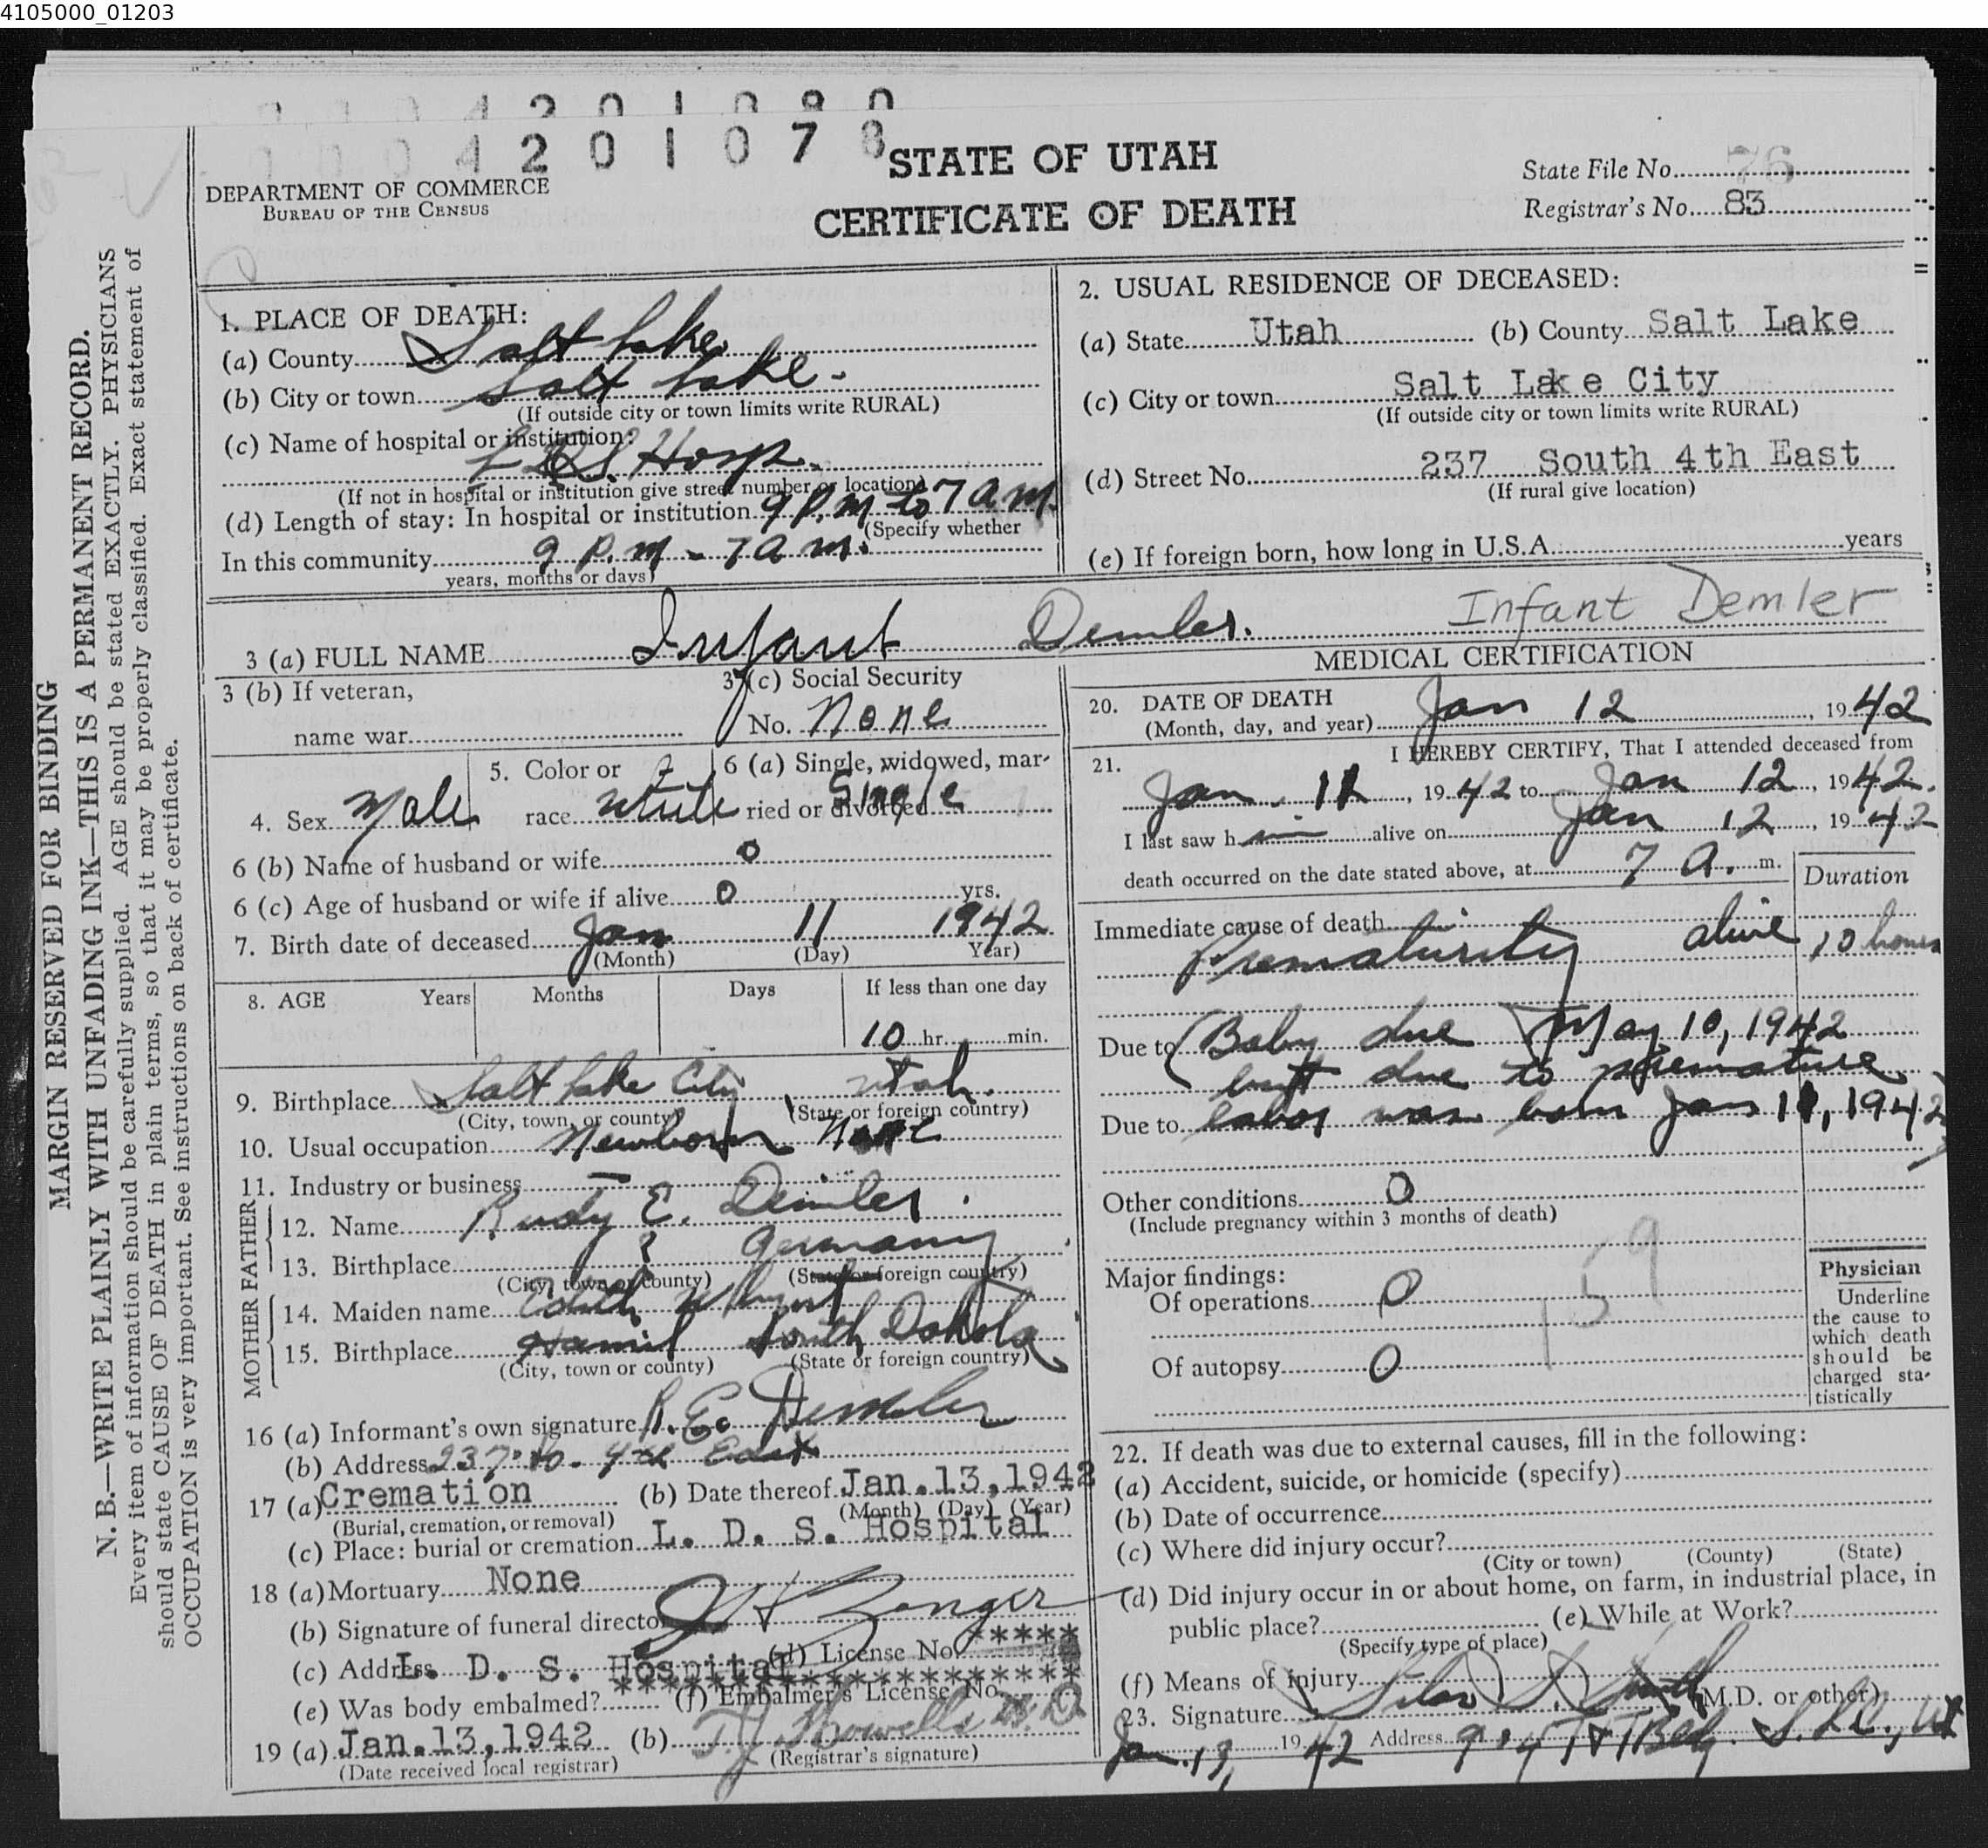 4105000_01203
0004201078
STATE OF UTAH
CERTIFICATE OF DEATH
DEPARTMENT OF COMMERCE
BUREAU OF THE CENSUS
State File No. 76
Registrar's No. 83
MARGIN RESERVED FOR BINDING
N. B.—WRITE PLAINLY WITH UNFADING INK—THIS IS A PERMANENT RECORD.
Every item of information should be carefully supplied. AGE should be stated EXACTLY. PHYSICIANS
should state CAUSE OF DEATH in plain terms, so that it may be properly classified. Exact statement of
OCCUPATION is very important. See instructions on back of certificate.
1. PLACE OF DEATH:
(a) County Salt Lake
(b) City or town Salt Lake.
(If outside city or town limits write RURAL)
(c) Name of hospital or institution:
L D S Hosp.
(If not in hospital or institution give street number or location)
(d) Length of stay: In hospital or institution 9 P.M to 7 a m.
(Specify whether
In this community 9 P.M - 7 a m.
years, months or days)
2. USUAL RESIDENCE OF DECEASED:
(a) State Utah (b) County Salt Lake
(c) City or town Salt Lake City
(If outside city or town limits write RURAL)
(d) Street No. 237 South 4th East
(If rural give location)
(e) If foreign born, how long in U.S.A. years
3 (a) FULL NAME Infant Demler. Infant Demler
3 (b) If veteran,
name war
3 (c) Social Security
No. None
4. Sex Male
5. Color or
race White
6 (a) Single, widowed, mar-
ried or divorced Single
6 (b) Name of husband or wife 0
6 (c) Age of husband or wife if alive 0 yrs.
7. Birth date of deceased Jan 11 1942
(Month) (Day) Year)
8. AGE Years Months Days If less than one day
10 hr. min.
9. Birthplace Salt Lake City Utah.
(City, town, or county) (State or foreign country)
10. Usual occupation Newborn None
11. Industry or business —
FATHER
12. Name Rudy E. Demler.
13. Birthplace ? Germany
(City, town or county) (State or foreign country)
MOTHER
14. Maiden name Edith
15. Birthplace Hamil South Dakota
(City, town or county) (State or foreign country)
16 (a) Informant's own signature R. E. Demler
(b) Address 237 So. 4th East
17 (a) Cremation (b) Date thereof Jan.13,1942
(Burial, cremation, or removal) (Month) (Day) (Year)
(c) Place: burial or cremation L. D. S. Hospital
18 (a) Mortuary None
(b) Signature of funeral director
(c) Address L. D. S. Hospital (d) License No. *****
(e) Was body embalmed? ****************** (f) Embalmer's License No.
19 (a) Jan.13,1942 (b) T.J. Howells M.D
(Date received local registrar) (Registrar's signature)
MEDICAL CERTIFICATION
20. DATE OF DEATH
(Month, day, and year) Jan 12, 1942
21. I HEREBY CERTIFY, That I attended deceased from
Jan. 11, 1942 to Jan 12, 1942.
I last saw h im alive on Jan 12, 1942
death occurred on the date stated above, at 7 a. m.
Duration
Immediate cause of death
Prematurity alive 10 hours
Due to (Baby due May 10, 1942
but due to premature
Due to labor was born Jan 11, 1942)
Other conditions 0
(Include pregnancy within 3 months of death)
159
Major findings:
Of operations 0
Of autopsy 0
Physician
Underline
the cause to
which death
should be
charged sta-
tistically
22. If death was due to external causes, fill in the following:
(a) Accident, suicide, or homicide (specify)
(b) Date of occurrence
(c) Where did injury occur?
(City or town) (County) (State)
(d) Did injury occur in or about home, on farm, in industrial place, in
public place? (e) While at Work?
(Specify type of place)
(f) Means of injury
23. Signature Silas S. Smith (M.D. or other)
Jan. 13, 1942 Address Bldg. S.L.C., Ut